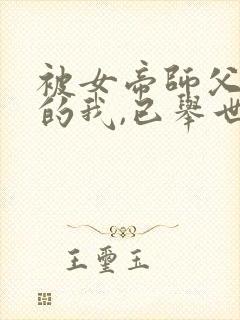 被女帝師父
的我,已舉世
王璽玉